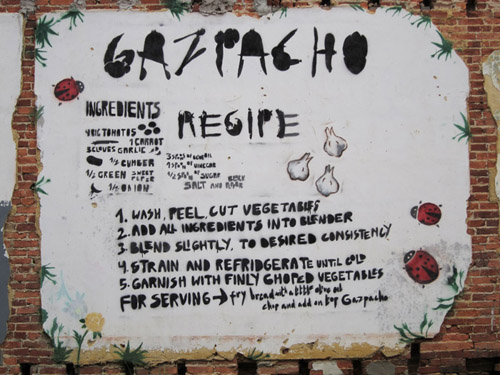 GAZPACHO
RECIPE
INGREDIENTS
4 BIG TOMATOS
1 CARROT
3 CLOVES GARLIC
1/2 CUMBER
1/2 GREEN SWEET PEPER
1/2 ONION
OLIVE OIL
OF VINEGAR
OF SUGAR
SALT AND
1. WASH, PEEL, CUT VEGETABLES
2. ADD ALL INGREDIENTS INTO BLENDER
3. BLEND SLIGHTLY, TO DESIRED CONSISTENCY
4. STRAIN AND REFRIDGERATE UNTIL COLD
5. GARNISH WITH FINLY CHOPED VEGETABLES
FOR SERVING → fry bread with a little olive oil
chop and add on top Gazpacho